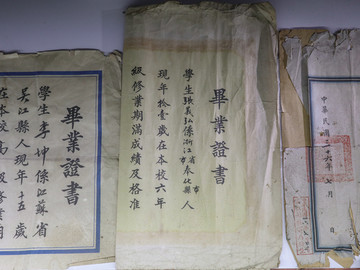 畢業證書
學生李坤係江蘇省
吴江縣人現年十五歲
在本校高級修業期
畢業證書
學生張義弘係浙江省奉化縣市人
現年拾壹歲在本校六年
級修業期滿成績及格准
中華民國三十六年七月 日